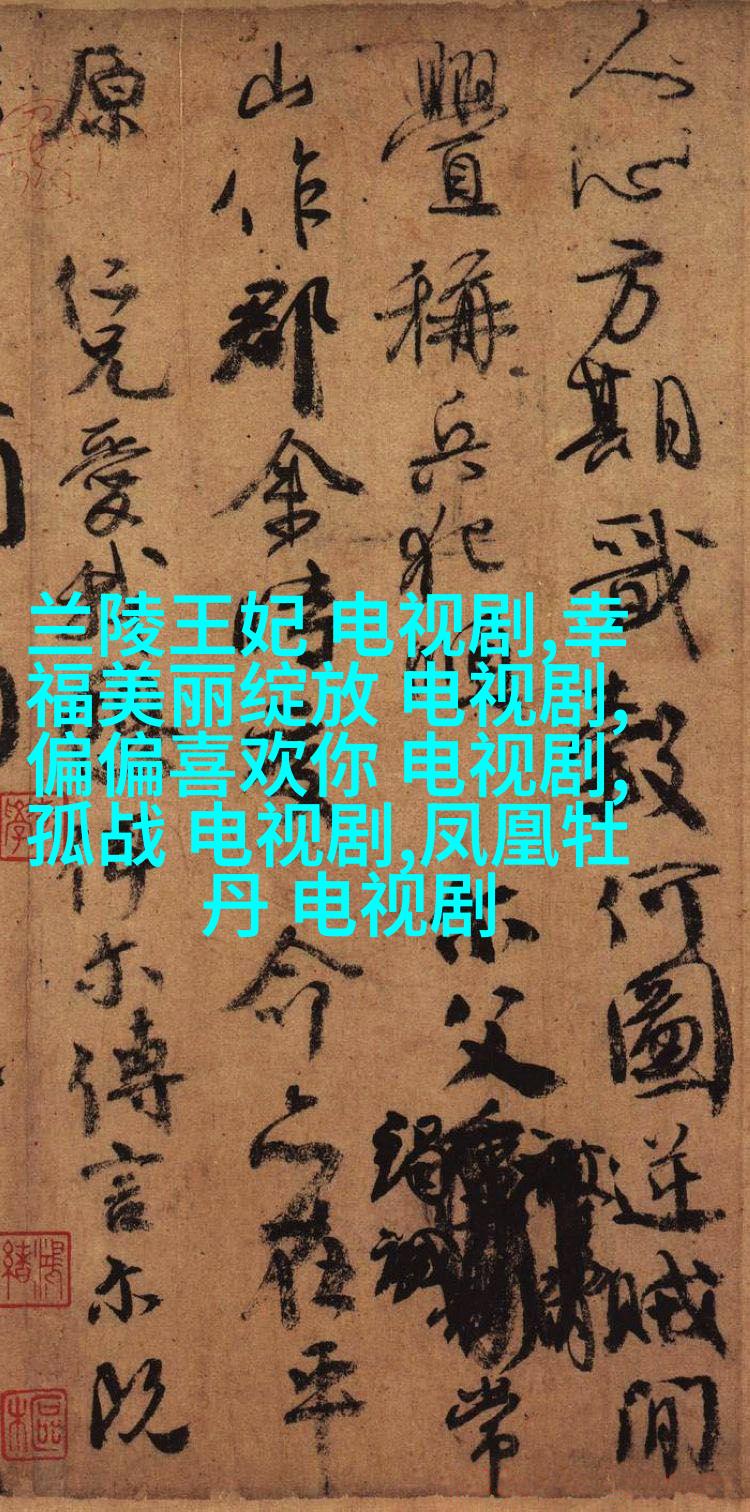 人心方期戩穀何圖逆賊間
釁稱兵犯順尔父竭誠常
山作郡余時受命亦在平
原仁兄愛我俾尔傳言尔既
兰陵王妃 电视剧,幸
福美丽绽放 电视剧,
偏偏喜欢你 电视剧,
孤战 电视剧,凤凰牡
丹 电视剧